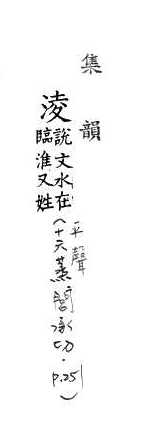 集韻
淩說文水在
臨淮又姓
(平聲
十六蒸閭承切.p.251)